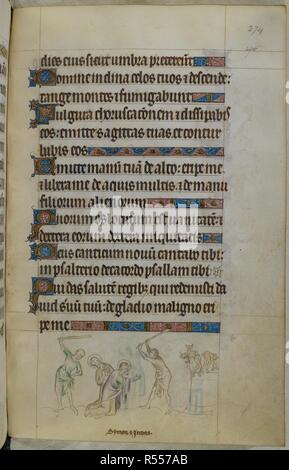 274
dies eius sicut umbra pretereunt
Domine inclina celos tuos & descende:
tange montes & fumigabunt
Fulgura choruscationem & dissipabis
eos: emitte sagittas tuas et contur
babis eos
Emitte manum tuam de alto: eripe me
& libera me de aquis multis: & de manu
filiorum alienorum
Quorum os locutum est vanitatem: &
dextera eorum dextera iniquitatis
Deus canticum novum cantabo tibi:
in psalterio decacordo psallam tibi
Qui das salutem regibus: qui redemisti da
vid servum tuum: de gladio maligno eri
pe me
Symon & Iudas
alamy
Image ID: R557AB
www.alamy.com